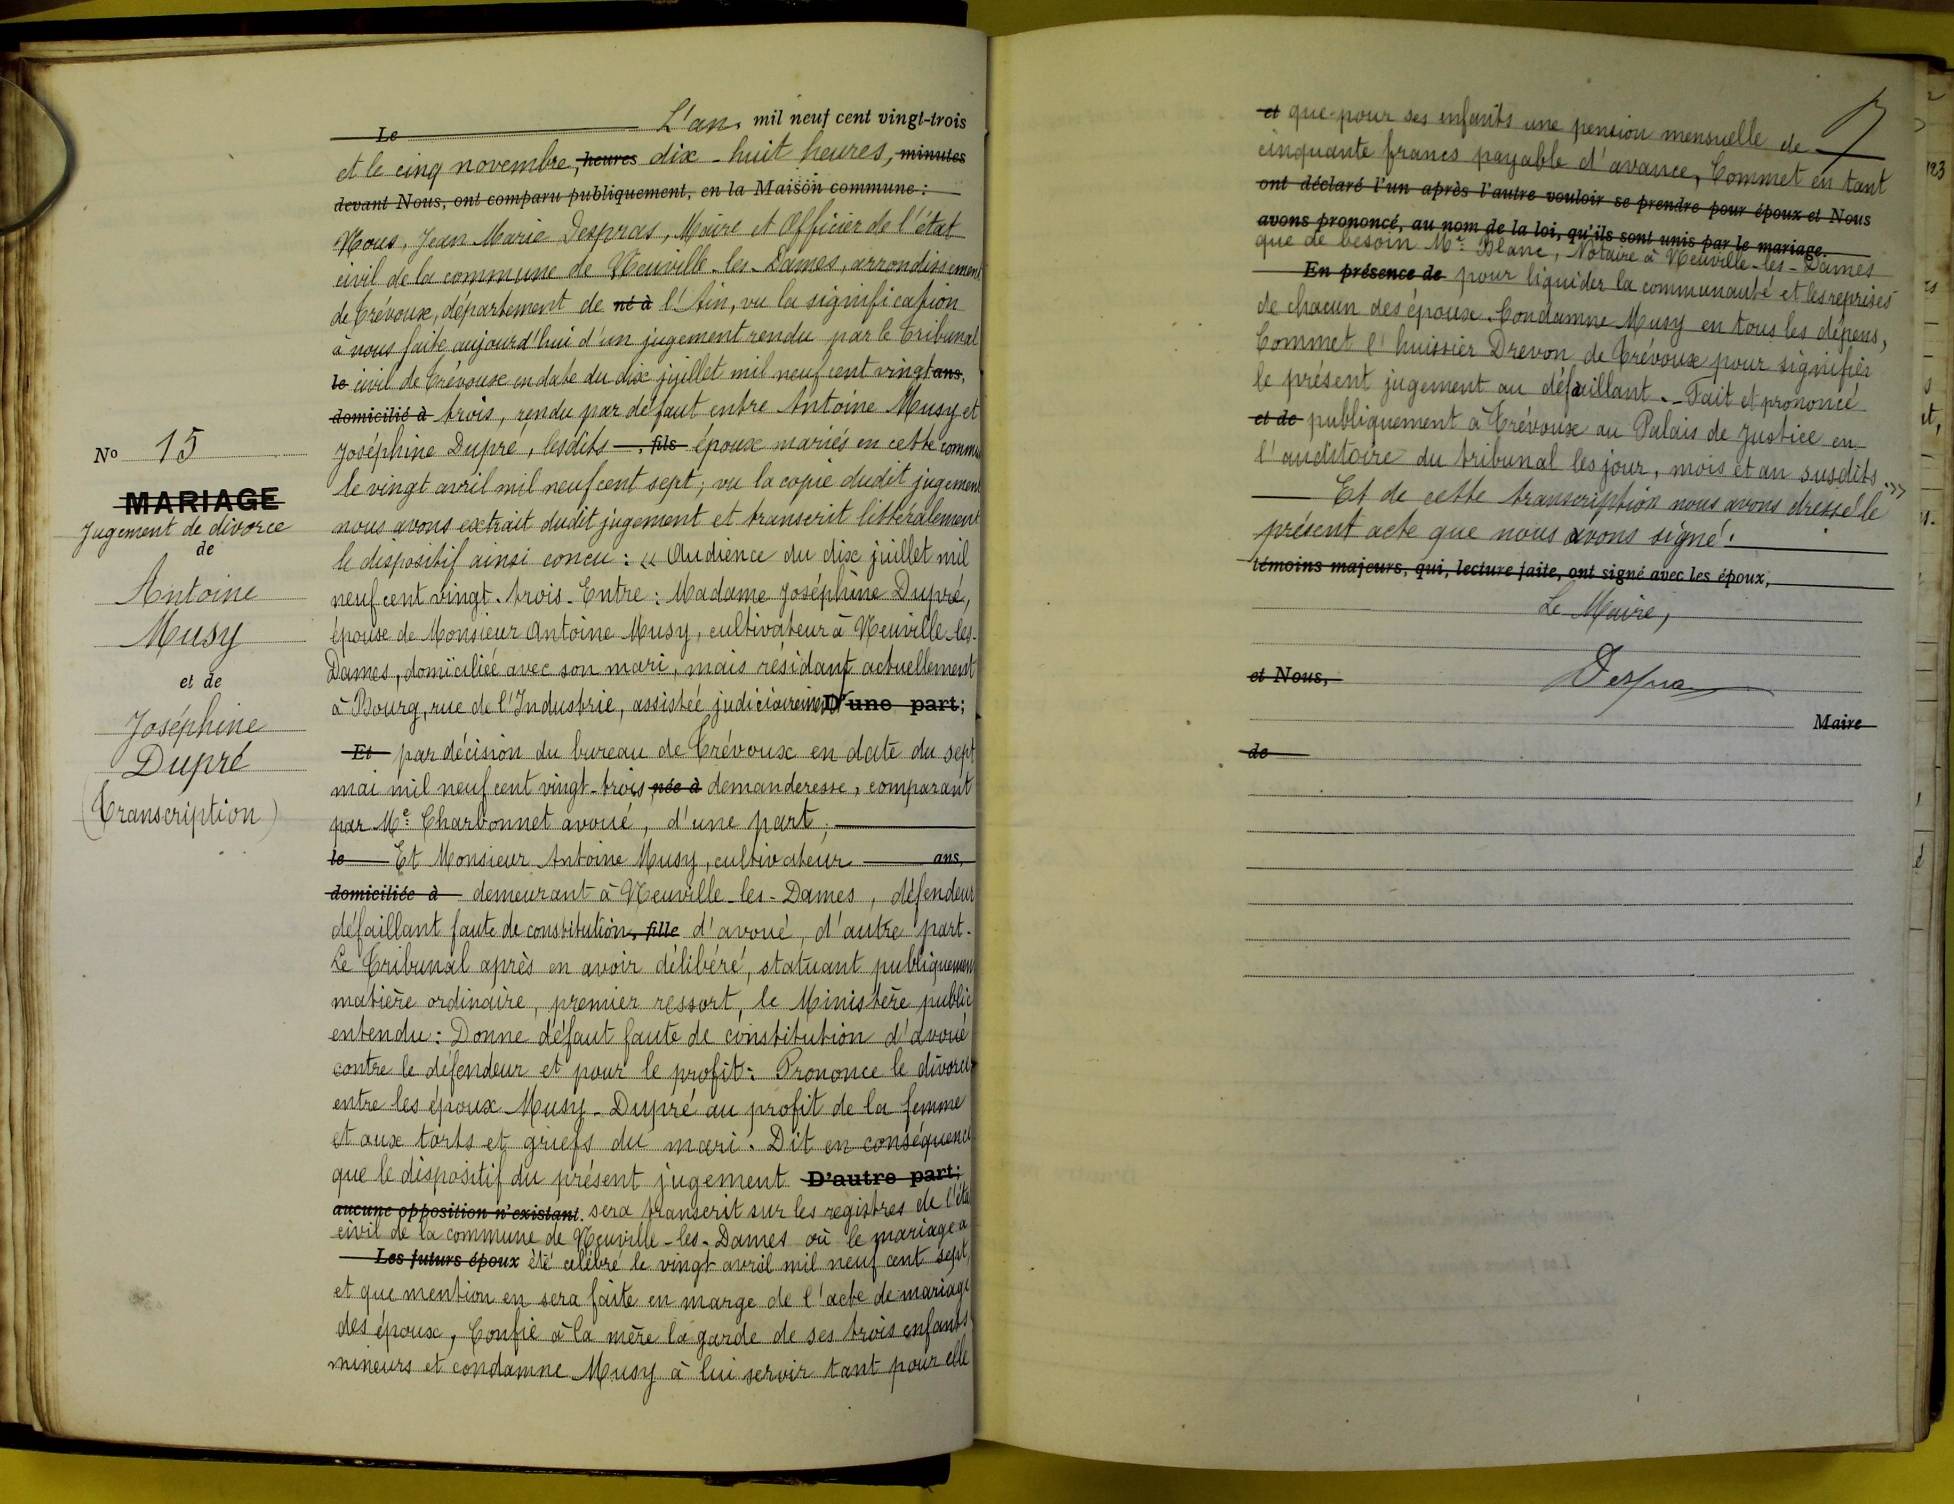 Le L'an mil neuf cent vingt-trois
et le cinq novembre, heures dix-huit heures, minutes
devant Nous, ont comparu publiquement, en la Maison commune :
Nous, Jean Marie Despras, Maire et Officier de l'état
civil de la commune de Neuville-les-Dames, arrondissement
de Trévoux, département de né à l'Ain, vu la signification
à nous faite aujourd'hui d'un jugement rendu par le Tribunal
le civil de Trévoux en date du dix juillet mil neuf cent vingt ans,
domicilié à trois, rendu par défaut entre Antoine Musy et
Joséphine Dupré, lesdits , fils époux mariés en cette commu
le vingt avril mil neuf cent sept; vu la copie dudit jugement
nous avons extrait dudit jugement et transcrit littéralement
le dispositif ainsi concu : « Audience du dix juillet mil
neuf cent vingt-trois - Entre : Madame Joséphine Dupré,
épouse de Monsieur Antoine Musy, cultivateur à Neuville-les-
Dames, domiciliée avec son mari, mais résidant actuellement
à Bourg, rue de l'Industrie, assistée judiciairement D'une part;
Et par décision du bureau de Trévoux en date du sept
mai mil neuf cent vingt-trois née à demanderesse, comparant
par Me Charbonnet avoué, d'une part;
le Et Monsieur Antoine Musy, cultivateur ans,
domiciliée à demeurant à Neuville-les-Dames, défendeur
défaillant faute de constitution, fille d'avoué, d'autre part.
Le Tribunal après en avoir délibéré, statuant publiquemen
matière ordinaire, premier ressort, le Ministère public
entendu : Donne défaut faute de constitution d'avoué
contre le défendeur et pour le profit : Prononce le divorce
entre les époux Musy-Dupré au profit de la femme
et aux torts et griefs du mari. Dit en conséquence
que le dispositif du présent jugement D'autre part;
aucune opposition n'existant. sera transcrit sur les registres de l'éta
civil de la commune de Neuville-les-Dames où le mariage a
Les futurs époux été célébré le vingt avril mil neuf cent sept,
et que mention en sera faite en marge de l'acte de mariage
des époux, Confie à la mère la garde de ses trois enfants
mineurs et condamne Musy à lui servir tant pour elle
No 15
MARIAGE
Jugement de divorce
de
Antoine
Musy
et de
Joséphine
Dupré
(Transcription)
et que pour ses enfants une pension mensuelle de
cinquante francs payable d'avance, Commet en tant
ont déclaré l'un après l'autre vouloir se prendre pour époux et Nous
avons prononcé, au nom de la loi, qu'ils sont unis par le mariage.
que de besoin Me Blanc, Notaire à Neuville-les-Dames
En présence de pour liquider la communauté et les reprises
de chacun des époux. Condamne Musy en tous les dépens,
Commet l'huissier Drevon de Trévoux pour signifier
le présent jugement au défaillant. - Fait et prononcé
et de publiquement à Trévoux au Palais de Justice en
l'auditoire du tribunal les jour, mois et an susdits. »
Et de cette transcription nous avons dressé le
présent acte que nous avons signé.
témoins majeurs, qui, lecture faite, ont signé avec les époux,
Le Maire,
et Nous,
Despras
Maire
de